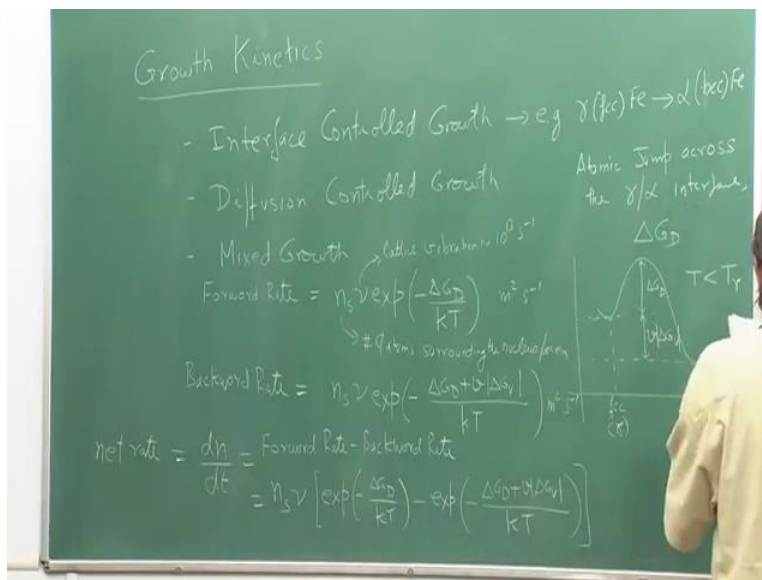 Growth Kinetics
- Interface Controlled Growth → e.g γ(fcc)Fe → α(bcc)Fe
- Diffusion Controlled Growth
- Mixed Growth
Atomic Jump across
the γ/α interface,
lattice vibration ≈ 10¹³ s⁻¹
Forward Rate = nₛ ν exp(-ΔG_D/kT) m² s⁻¹
# of atoms surrounding the nucleus/
Backword Rate = nₛ ν exp(-ΔG_D+v|ΔGᵥ|/kT) m² s⁻¹
net rate = dn/dt = Forward Rate - Backword Rate
= nₛ ν [exp(-ΔG_D/kT) - exp(-ΔG_D+v|ΔGᵥ|/kT)]
ΔG_D
ΔG_D
T < Tᵣ
v|ΔGᵥ|
fcc
(γ)